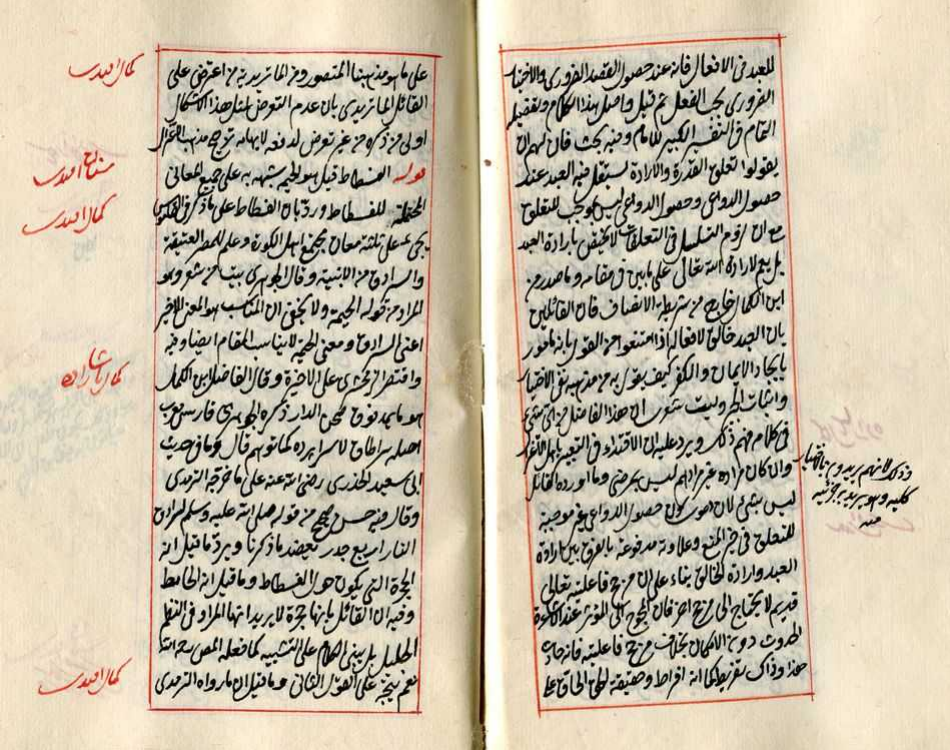 للعبد فى الافعال فانه عند حصول القصد الضرورى والاختيار
الضرورى يجب الفعل ثم قيل واصل هذا الكلام وتفصيله
التام فى التفسير الكبير للامام وفيه بحث فان لهم ان
يقولوا تعلق القدرة والارادة يستقل فيه العبد عند
حصول الدواعى وحصول الدواعى ليس بموجب للتعلق
مع ان لزوم التسلسل فى التعلقات لا يختص بارادة العبد
بل يعم لارادة الله تعالى على ما بين فى مقامه وما صدر من
ابن الكمال خارج من شريطة الانصاف فان القائلين
بان العبد خالق لافعاله اذا امتنعوا من القول بانه مأمور
بايجاد الايمان والكفر كيف يقول به من مذهبه نفى الاختيار
واثبات الجبر وليت شعرى ان هذا الفاضل من اى شئ
فى كلامهم فهم ذلك ويرد عليه ان الاقتداء فى التعبير باهل
وان كان مراده غير مرادهم ليس بمرضى وما اورده القائل
ليس بشئ لان دعوى كون حصول الدواعى غير موجبة
للتعلق فى حيز المنع وعلاوته مدفوعة بالفرق بين ارادة
العبد وارادة الخالق بناء على ان مرجح فاعليته تعالى
قديم لا يحتاج الى مرجح اخر فان المحوج الى المؤثر عند
الحدوث دون الامكان بخلاف مرجح فاعليته فانه حادث
هذا وذاك تفريط كما انه افراط وحقيقة الحق
وذلك لانهم يريدون
كلية وهو يريد جزئية
منه
على ما هو مذهبنا المنصور ومن الماتريدية من اعترض على
القائل الماتريدى بان عدم التعرض لمثل هذا الاشكال
اولى من ذكره من غير تعرض لدفعه لايهامه ترجيح مذهب الاعتزال
قوله الفسطاط قيل هو الخيمة شبهه به على جميع المعانى
المحتملة للفسطاط ورد بان الفسطاط على ما ذكر فى القاموس
يجئ على ثلثة معان مجتمع اهل الكورة وعلم للمصر العتيقة
والسرادق من الابنية وقال الجوهرى بيت من شعر وهو
المراد من قوله الخيمة ولا يخفى ان المناسب هو المعنى الاخير
اعنى السرادق ومعنى الخيمة لا يناسب المقام ايضا وفيه
واقتصر الزمخشرى على الاخيرة وقال الفاضل ابن الكمال
هو ما يمد فوق صحن الدار ذكره الجوهرى فارسى معرب
اصله سراطاق لا سراپرده كما توهم قال وما فى حديث
ابى سعيد الخدرى رضى الله عنه على ما خرجه الترمذى
وقال فيه حسن صحيح من قوله صلى الله عليه وسلم لسرادق
النار اربع جدر يعضد ما ذكرنا ويرد ما قيل انه
الحجرة التى يكون حول الفسطاط وما قيل انه الحائط
وفيه ان القائل بانها حجرة لا يريد انها المراد فى النظم
الجليل بل يبنى الكلام على التشبيه كما فعله المص رحمه الله
نعم يتجه على القول الثانى وما قيل ان ما رواه الترمذى
كمال افندى
كمال افندى
كمال پاشا زاده
كمال افندى